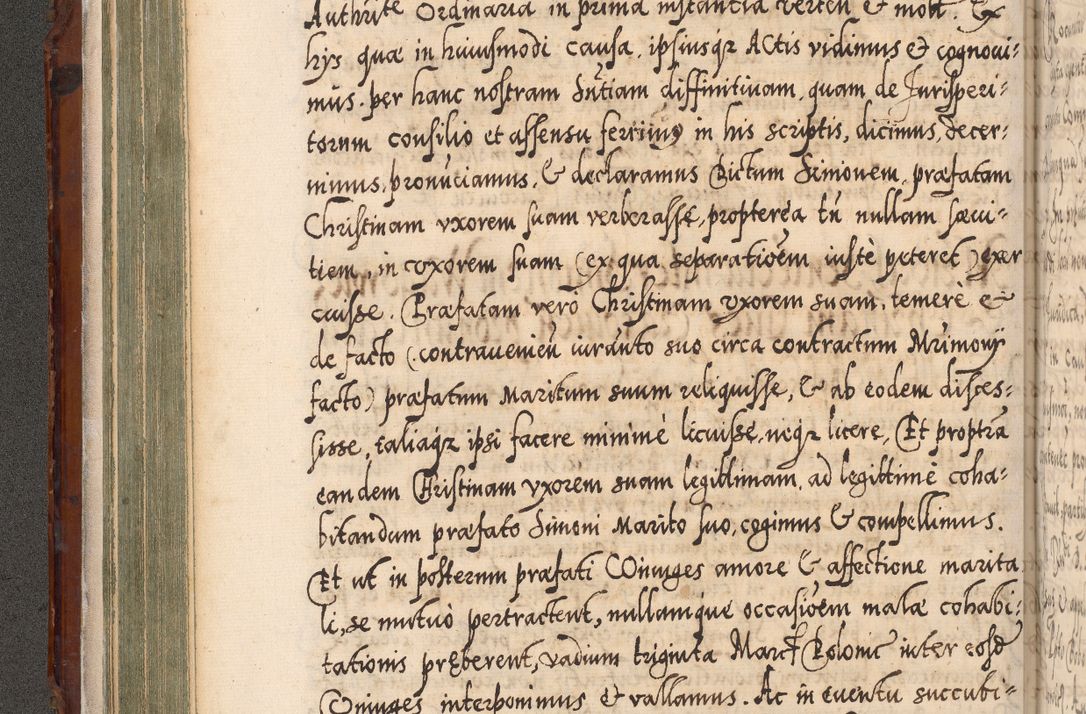 Authrite Ordinaria in prima instantia verten & mot. Ex
hys quæ in huiusmodi causa, ipsiusqz Actis vidimus & cognoui-
mus. per hanc nostram Sntiam diffinitiuam, quam de Jurisperi-
torum consilio et assensu ferrimus in his scriptis, dicimus, decer-
nimus, pronuciamus, & declaramus Dictum Simonem, præfatam
Christinam vxorem suam verberasse, propterea tn nullam sæui-
tiem, in vxorem suam (ex qua separatioem iustè peteret) exer
cuisse. Præfatam verò Christinam vxorem suam, temerè &
de facto (contraueniendo iuranto suo circa contractum Mrimonij
facto) præfatum Maritum suum reliquisse, & ab eodem disces-
sisse, taliaqz ipsi facere minimè licuisse, neqz licere, Et proptra
eandem Christinam vxorem suam legittimam, ad legittimè coha-
bitandum præfato Simoni Marito suo, cogimus & compellimus.
Et ut in posterum præfati Coniuges amore & affectione marita
li, se mutuò pertractent, nullamque occasioem malæ cohabi-
tationis prębereut, vadium triginta Marc Polonic inter eosd
Coniuges interponimus & vallamus. Ac in euentu succubi-